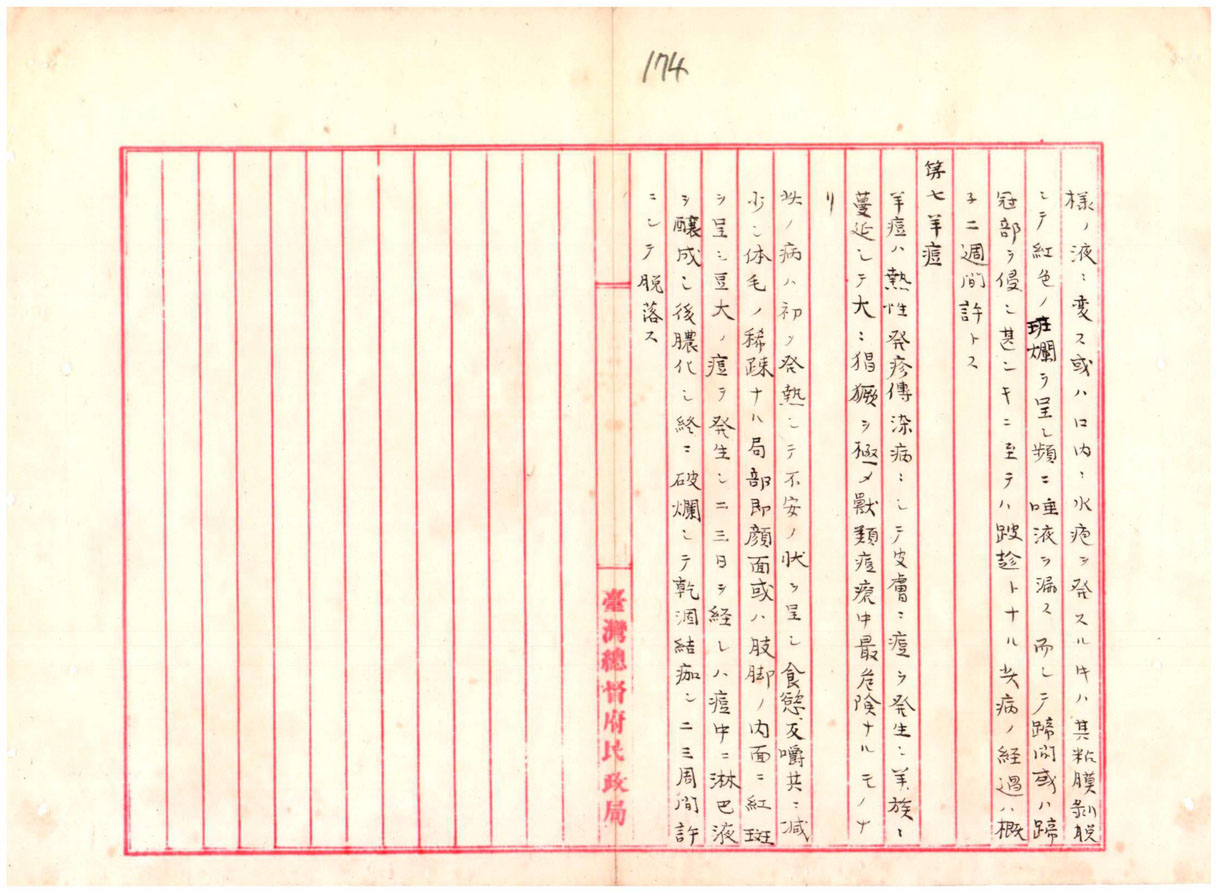 174
様ノ液ニ変ス或ハ口内ニ水疱ヲ発スルキハ其粘膜剥脱
シテ紅色ノ斑爛ヲ呈シ頻ニ唾液ヲ漏ス而シテ蹄間或ハ蹄
冠部ヲ侵シ甚シキニ至テハ跛趁トナル此病ノ経過ハ概
子二週間許トス
第七羊痘
羊痘ハ熱性発疹傳染病ニシテ皮膚ニ痘ヲ発生シ羊族ニ
蔓延シテ大ニ猖獗ヲ極メ獸類痘瘡中最危険ナルモノナ
リ
此ノ病ハ初メ発熱シテ不安ノ状ヲ呈シ食慾反嚼共ニ减
少シ体毛ノ稀疎ナル局部即顔面或ハ肢脚ノ内面ニ紅斑
ヲ呈シ豆大ノ痘ヲ発生シ二三日ヲ経レハ痘中ニ淋巴液
ヲ醸成シ後膿化シ終ニ破爛シテ乾涸結痂シ二三周間許
ニシテ脱落ス
臺灣總督府民政局